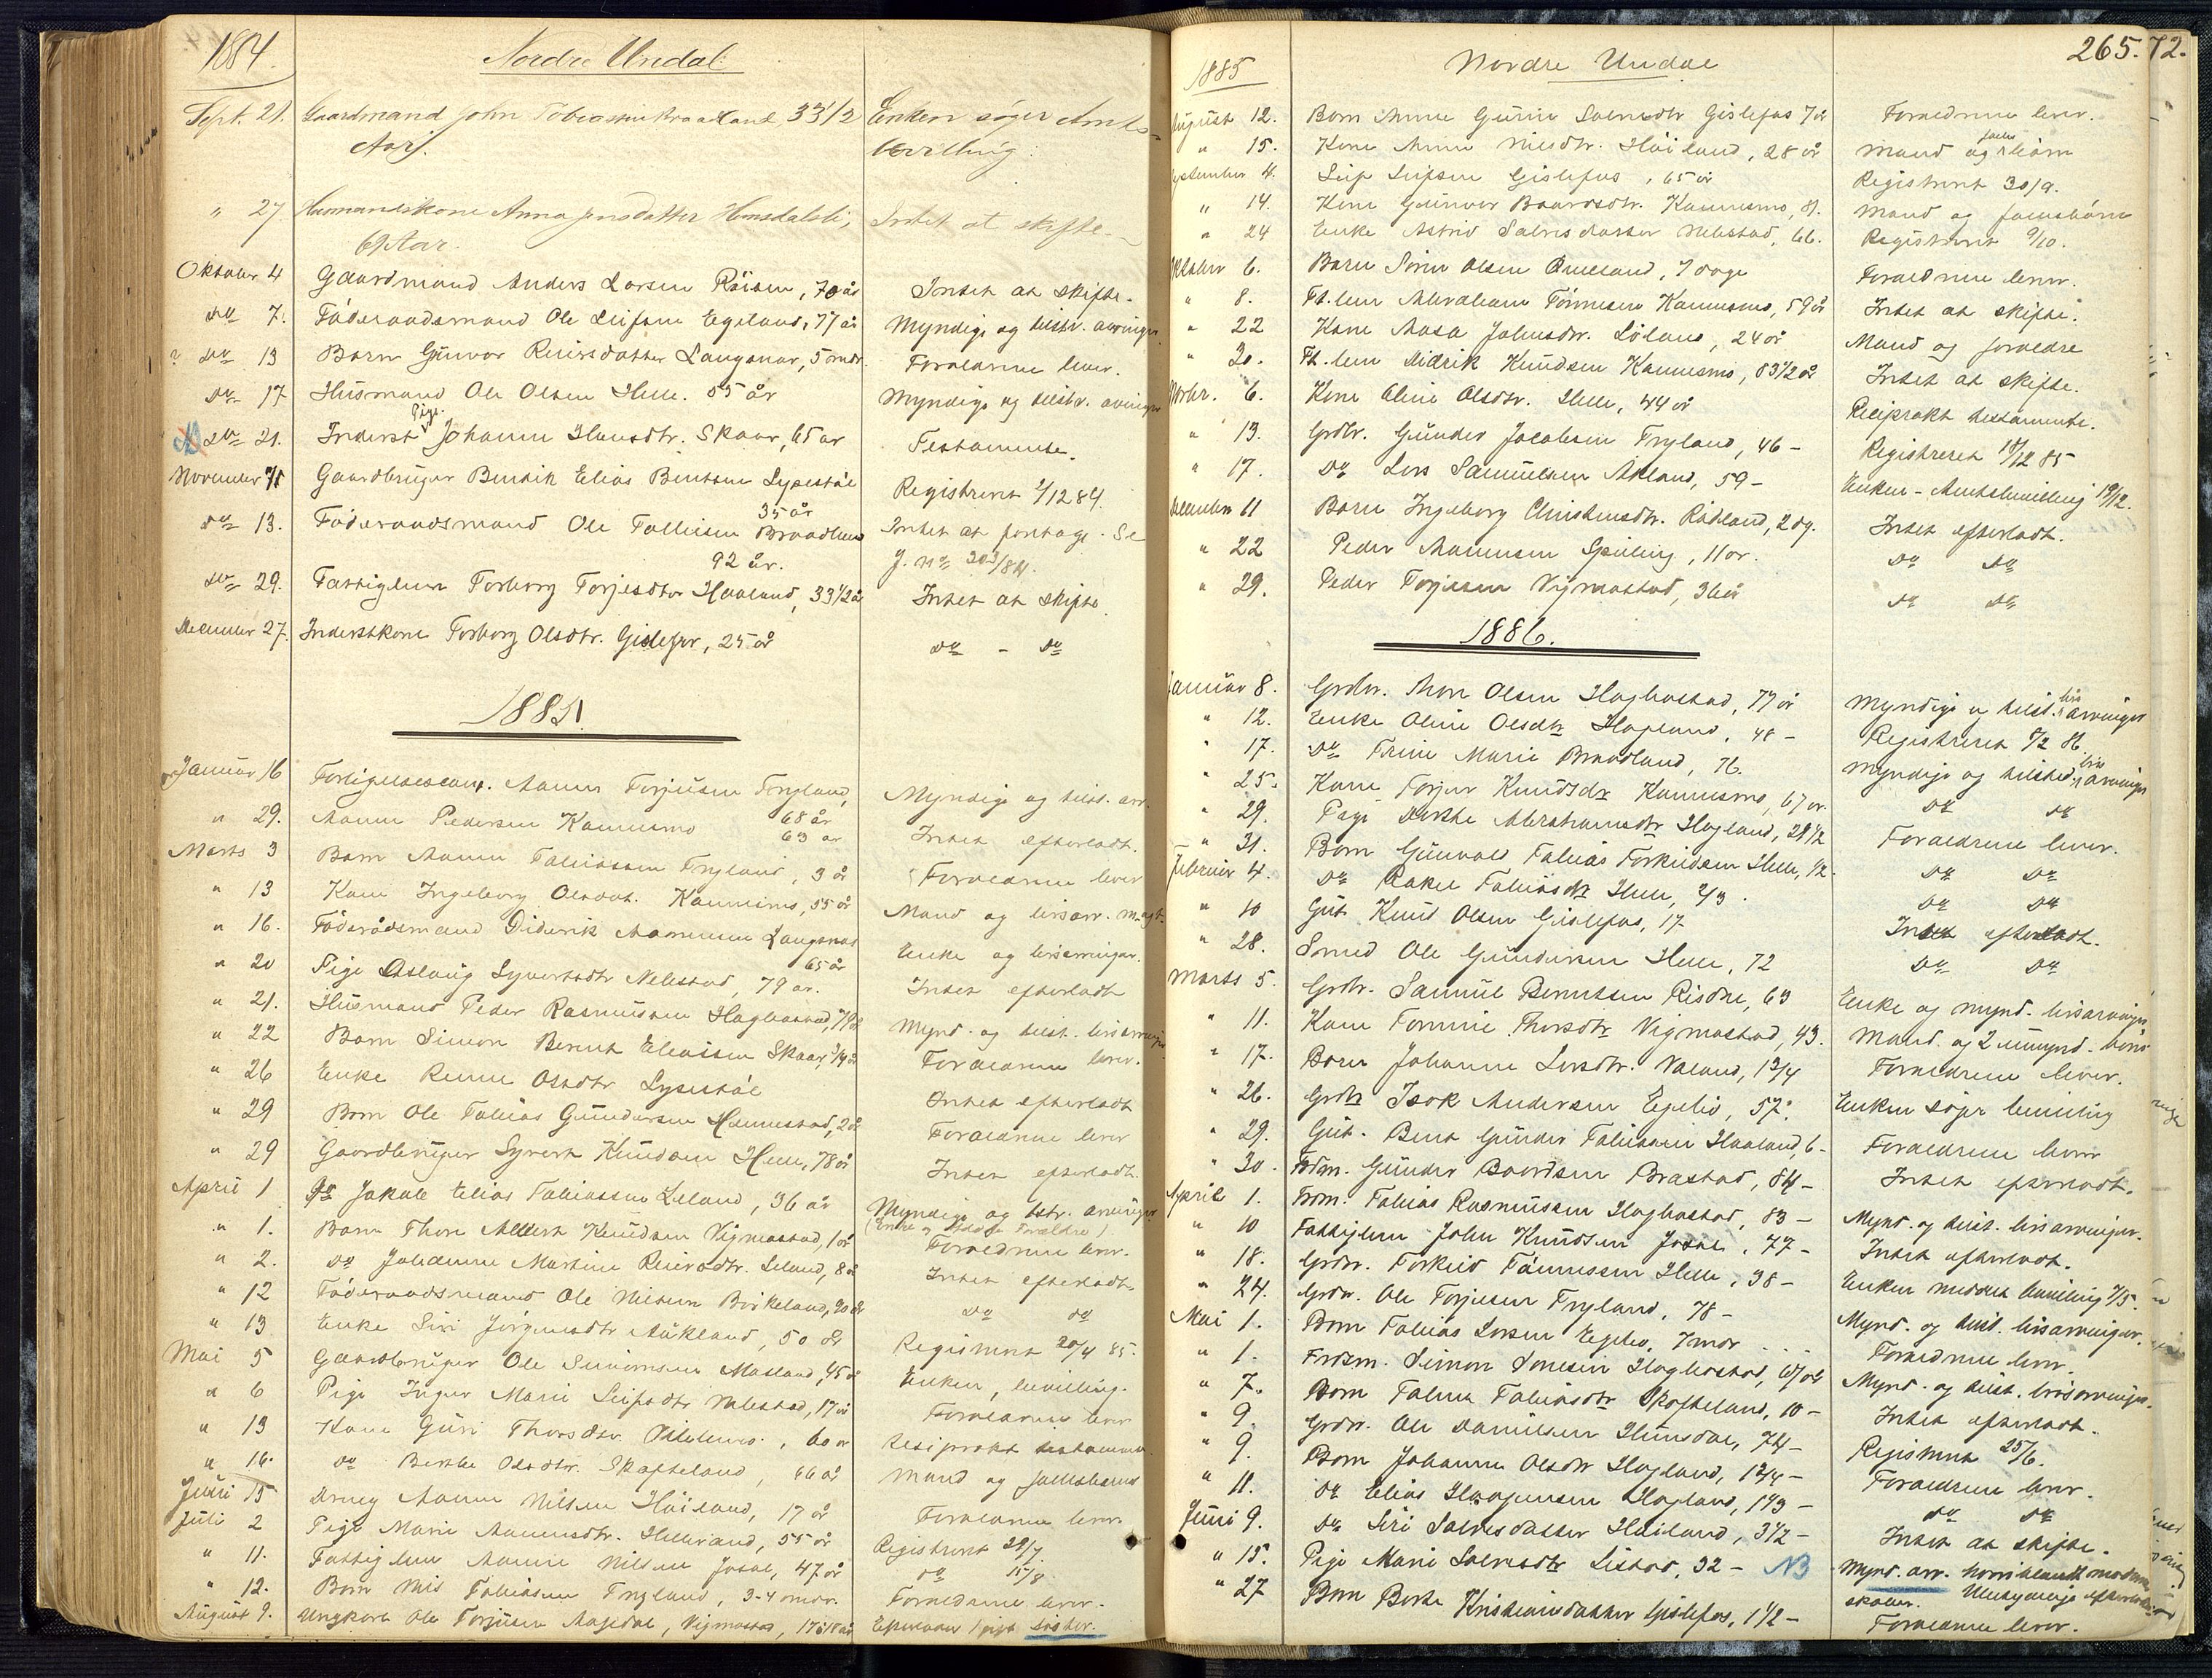 1884.
Nordre Undal
Sept. 21. Gaardmand John Tobiassen Kraaland, 33 1/2 Enken søger Amts-
Aar. bevilling.
" 27 Husmandskone Anna Jensdatter Homsdalsli, Intet at skifte.
69 Aar.
Oktober 4 Gaardmand Anders Larsen Röisen, 70 år Intet at skifte.
do 7. Föderaadsmand Ole Leifsen Egeland, 77 år Myndige og tilstr. arvinger
do 13 Barn Gunvor Reiersdatter Laugsnar, 5 mdr. Foraeldrene lever.
do 17 Husmand Ole Olsen Helle. 55 år Myndige og tilstr. arvinger
Pige
do 21. Inderst Johanne Hansdtr. Skaar, 65 år Testamente.
November 11 Gaardbruger Bendik Elias Bentsen Lysestöl Registreret 2/12 84.
35 år
do 13. Föderaadsmand Ole Tolleisen Braadland Intet at foretage. Se
92 år. J. No 303/84.
do 29. Fattiglem Torborg Torjesdtr Haaland, 33 1/2 år Intet at skifte.
December 27. Inderstkone Torborg Olsdtr. Gislefos, 25 år do - do
1885
Januar 16 Forligelsescom. Aanen Torjusen Fryland, Myndige og tilst. arv.
68 år
" 29. Aanen Pedersen Kannesmo 63 år Intet efterladt.
Marts 3 Barn Aanen Tobiassen Fryland, 3 år Foraeldrene lever
" 13 Kone Ingeborg Olsdat. Kannesmo, 55 år Mand og livsarv.
" 16. Föderådsmand Diderik Aanensen Laugsnar Enke og livsarvinger.
65 år
" 20 Pige Aslaug Syvertsdtr Nebestad, 79 år. Intet efterladt
" 21. Husmand Peder Rasmussen Hagbostad, 79 år Mynd. og tilst. livsarvinger
" 22 Barn Simon Bernt Eliassen Skaar, 3/4 år Foraeldrene lever.
" 26 Enke Olsdtr Lysestöl Intet efterladt
" 29 Barn Ole Tobias Gundersen Hennestad, 2 år Foraeldrene lever
" 29 Gaardbruger Syvert Knudsen Helle, 78 år Intet efterladt.
April 1 do Jakob Elias Tobiassen Leland, 36 år Myndige og tstr. arvinger
(Enke og Foraeldre)
" 1. Barn Thore Albert Knudsen Vigmostad, 1 år Foraeldrene lever.
" 2. do Johanne Martine Reiersdtr. Leland, 8 år Intet efterladt.
" 12 Föderaadsmand Ole Nilsen Birkeland, 90 år do do
" 13 Enke Siri Jörgensdtr Aukland, 50 år Registreret 20/4 85.
Mai 5 Gaardbruger Ole Simonsen Mosland, 45 år Enken, bevilling.
" 6 Pige Inger Marie Leifsdtr Nebestad, 17 år Foraeldrene lever
" 13 Kone Guri Thorsdtr. , 60 år Resiprokt testamente.
" 16. do Berthe Olsdtr. Skofteland, 66 år Mand og faellesbarn
Juni 15 Dreng Aanen Nilsen Höiland, 17 år Foraeldrene lever.
Juli 2 Pige Marie Aanensdtr. Hellerand, 55 år Registreret 29/7.
" 11. Fattiglem Aanen Nilsen Josdal, 47 år do 15/8.
" 12. Barn Nils Tobiassen Fryland, 3-4 mdr. Foraeldrene lever.
August 9. Ungkarl Ole Torjusen Aasedal, Vigmostad, 17 à 18 år Efterlader 1 gift söster.
265. 72.
1885
Nordre Undal
August 12. Barn Anne Gurine Salvesdtr Gislefos 7 år Foraeldrene lever.
" 15. Kone Anne Nilsdtr. Höiland, 28 år Mand og faelles börn
September 4. Leif Leifsen Gislefos, 65 år Registreret 30/9.
" 14. Kone Gunvor Baardsdtr. Kannesmo, 81. Mand og faellesbörn
" 24 Enke Astrid Salvesdatter Nebestad, 66. Registreret 9/10.
Oktober 6. Barn Sören Olsen Omeland, 7 dage Foraeldrene lever.
" 8. Ft.lem Abraham Tönnesen Kannesmo, 59 år Intet at skifte.
" 22 Kone Aasa Johnsdtr. Löland, 24 år Mand og foraeldre
" 30. Ft.lem Didrik Knudsen Kannesmo, 83 1/2 år Intet at skifte.
Novbr. 6. Kone Oline Olsdtr. Helle, 44 år Reciprokt testamente.
" 13. Grdbr. Gunder Jacobsen Fryland, 46 - Registreret 18/12 85
" 17. do Lars Samuelsen Aukland, 59 - Enken - Amtsbevilling 19/12.
December 11 Barn Ingeborg Christensdtr. Rödland, 2 dg. Intet efterladt.
" 22 Peder Aanensen Spilling, 11 år. do do
" 29. Peder Torjesen Vigmostad, 36 år do do
1886.
Januar 8. Grdbr. Aron Olsen Hagbostad, 77 år Myndige og tilst. livsarvinger
" 12. Enke Oline Olsdtr Hageland, 48 - Registreret 8/2 86.
" 17. do Trine Marie Braadland, 76. Myndige og tilsted. livsarvinger
" 25. Kone Torjer Knudsdtr Kannesmo, 67 år. do do
" 29. Pige Dorthe Abrahamsdtr Hageland, 21 1/2 Foraeldrene lever.
" 31. Barn Gunvald Tobias Torkildsen Helle, 1/2. do do
Februar 4. do Rakel Tobiasdtr Helle, 2/3. do do
" 10 Gut Knud Olsen Gislefos, 17 Intet efterladt.
" 28. Smed Ole Gundersen Helle, 72 do do
Marts 5. Grdbr. Samuel Berntsen Risdne, 63 Enke og mynd. livsarvinger
" 11. Kone Tomine Thorsdtr Vigmostad, 43. Mand og 2 umynd. börn
" 17. Barn Johanne Larsdtr. Valand, 1 3/4 Foraeldrene lever.
" 26. Grdbr Isak Andersen Egelid, 57. Enken söger bevilling
" 29. Gut. Bent Gunder Tobiassen Haaland, 6 - Foraeldrene lever
" 30. Födm. Gunder Baardsen Brastad, 84 - Intet efterladt.
April 1. Födm. Tobias Rasmussen Hagbostad, 83 - Mynd. og tilst. livsarvinger.
" 10 Fattiglem John Knudsen Josdal, 77 - Intet efterladt.
" 18. Grdbr. Torkild Tönnessen Helle, 38 - Enken meddelt bevilling 7/5.
" 24. Grdbr. Ole Torjusen Fryland, 78 - Mynd. og tilst. livsarvinger.
Mai 1. Barn Tobias Larsen Egelid, 7 mdr Foraeldrene lever.
" 1. Frdsm. Simon Hagbostad, 67 år Mynd. og tilst. livsarvinger.
" 7. Barn Talene Tobiasdtr Skofteland, 10 - Intet efterladt.
" 9. Grdbr. Ole Danielsen Hunsdal, 74 - Registreret 25/6.
" 9. Barn Johanne Olsdtr Hogland, 1 3/4 - Foraeldrene lever.
" 11. do Elias Haagensen Hogland, 1 1/3 - do do
Juni 9. do Siri Salvesdatter Höiland, 3 1/2 - Intet at skifte.
" 15. Pige Marie Salvesdtr Listad, 32 - NB Mynd. arv. hvoriblandt moderen,
skifter.
" 27 Barn Berte Kristiansdatter Gislefos, 1 1/2 - Foraeldrene lever.